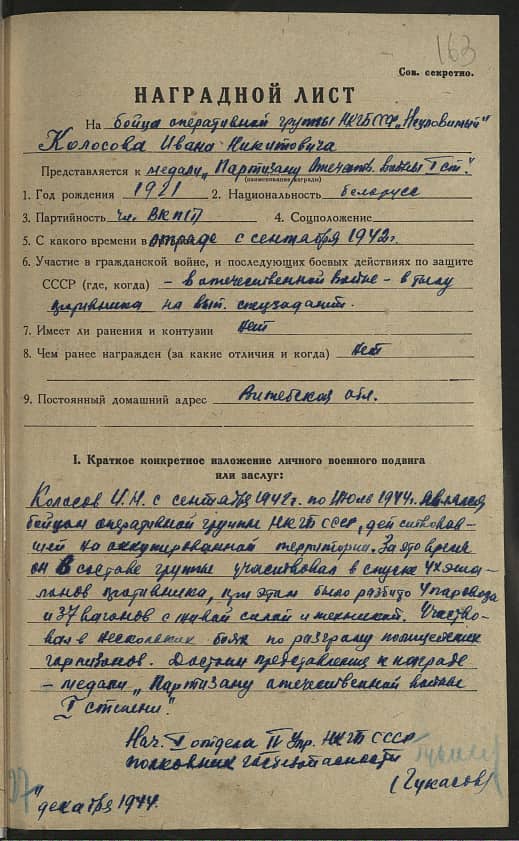 163
Сов. секретно.
НАГРАДНОЙ ЛИСТ
На бойца оперативной группы НКГБ СССР „Неуловимый"
Колосова Ивана Никитовича
Представляется к медали „Партизану Отечеств. войны I ст."
(наименование награды)
1. Год рождения 1921 2. Национальность белорусс
3. Партийность чл. ВКП(б) 4. Соцположение
5. С какого времени в отряде с сентября 1942 г.
6. Участие в гражданской войне, и последующих боевых действиях по защите
СССР (где, когда) – в отечественной войне – в тылу
противника на вып. спецзаданий.
7. Имеет ли ранения и контузии нет
8. Чем ранее награжден (за какие отличия и когда) нет
9. Постоянный домашний адрес Витебская обл.
I. Краткое конкретное изложение личного военного подвига
или заслуг:
Колосов И.Н. с сентября 1942 г. по июль 1944 являлся
бойцом оперативной группы НКГБ СССР, действовав-
шей на оккупированной территории. За это время
он в составе группы участвовал в спуске 4х эша-
лонов противника, при этом было разбито 4 паровоза
и 37 вагонов с живой силой и техникой. Участво-
вал в нескольких боях по разгрому полицейских
гарнизонов. Достоин представления к награде
– медали „Партизану отечественной войны
I степени".
Нач. I отдела IV Упр. НКГБ СССР
полковник госбезопасности
(Гукасов)
27 " декабря 1944.